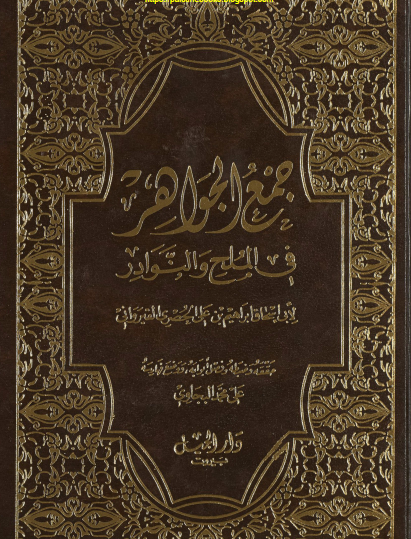 جمع الجواهر
في الملح والنوادر
لأبي إسحاق إبراهيم بن علي الحصري القيرواني
حققه وضبطه وفصل أبوابه ووضع فهارسه
علي محمد البجاوي
دار الجيل
بيروت